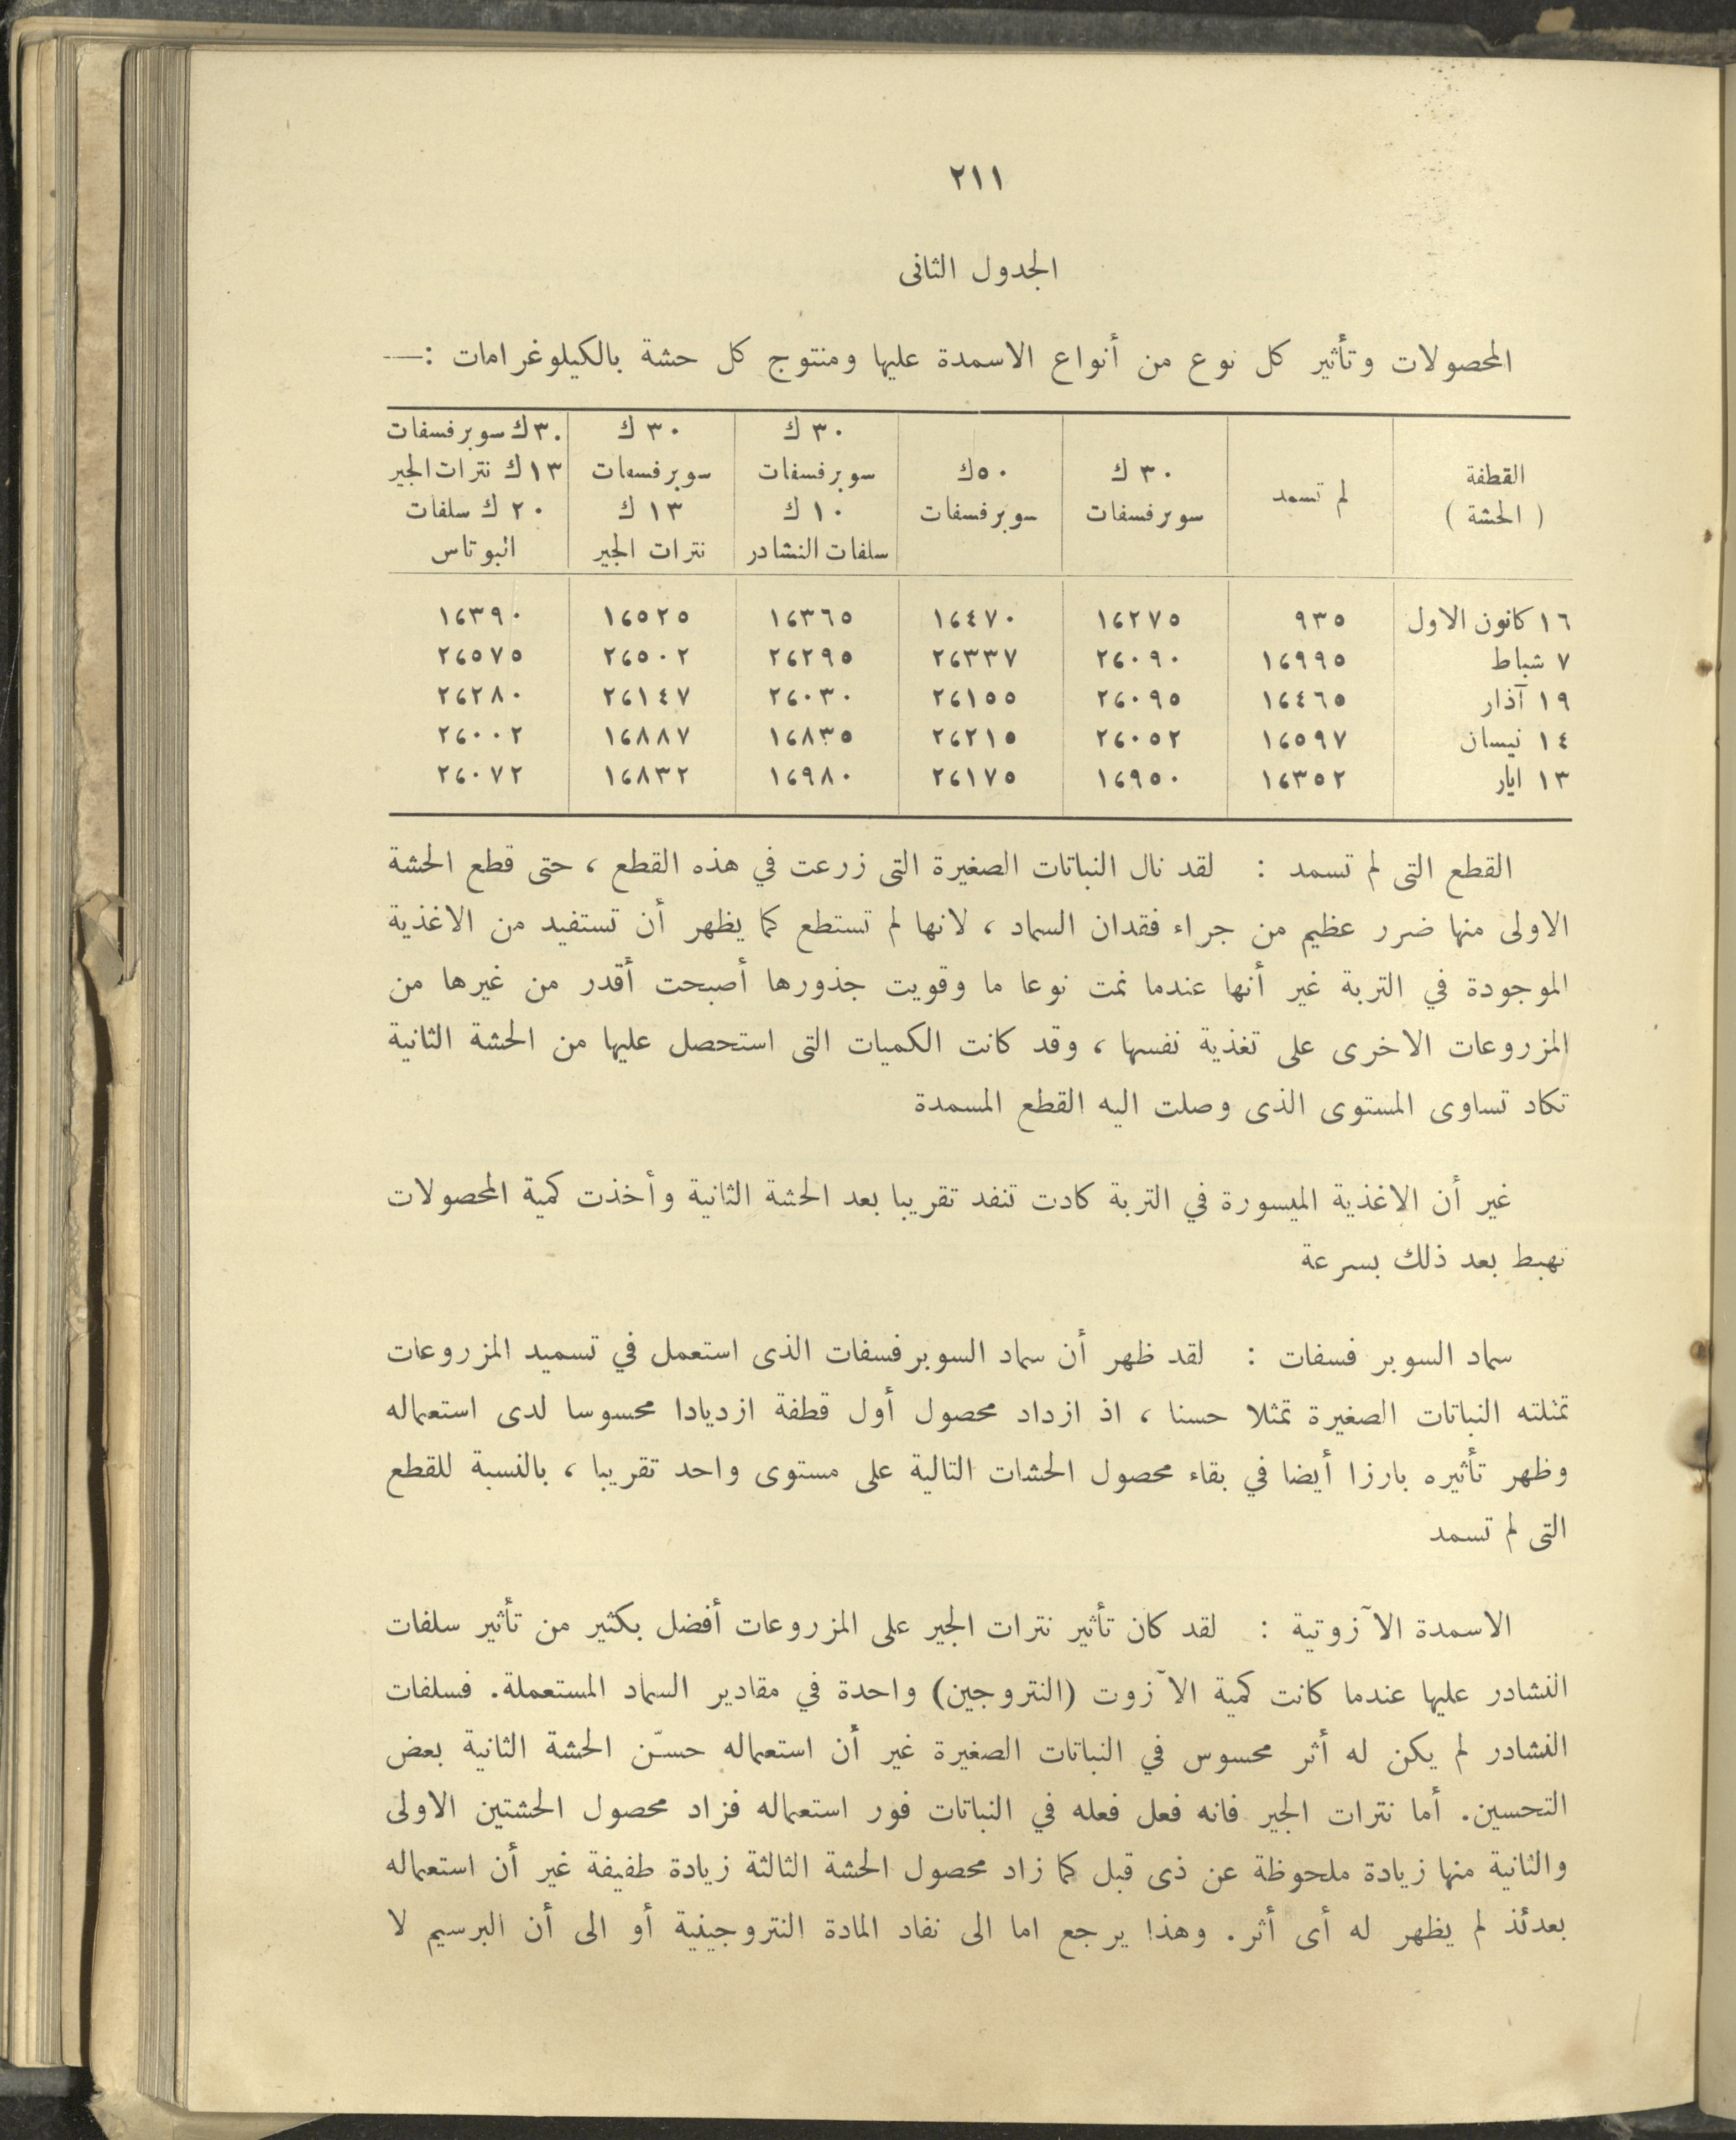 ٢١١
الجدول الثانى
المحصولات وتأثير كل نوع من أنواع الاسمدة عليها ومنتوج كل حشة بالكيلوغرامات :—
القطفة ( الحشة ) | لم تسمد | ٣٠ ك سوبرفسفات | ٥٠ك سوبرفسفات | ٣٠ ك سوبرفسفات ١٠ ك سلفات النشادر | ٣٠ ك سوبرفسفات ١٣ ك نترات الجير | ٣٠ك سوبرفسفات ١٣ك نترات الجير ٢٠ ك سلفات البوتاس
١٦ كانون الاول | ٩٣٥ | ١،٢٧٥ | ١،٤٧٠ | ١،٣٦٥ | ١،٥٢٥ | ١،٣٩٠
٧ شباط | ١،٩٩٥ | ٢،٠٩٠ | ٢،٣٣٧ | ٢،٢٩٥ | ٢،٥٠٢ | ٢،٥٧٥
١٩ آذار | ١،٤٦٥ | ٢،٠٩٥ | ٢،١٥٥ | ٢،٠٣٠ | ٢،١٤٧ | ٢،٢٨٠
١٤ نيسان | ١،٥٩٧ | ٢،٠٥٢ | ٢،٢١٥ | ١،٨٣٥ | ١،٨٨٧ | ٢،٠٠٢
١٣ ايار | ١،٣٥٢ | ١،٩٥٠ | ٢،١٧٥ | ١،٩٨٠ | ١،٨٣٢ | ٢،٠٧٢
القطع التى لم تسمد : لقد نال النباتات الصغيرة التى زرعت في هذه القطع ، حتى قطع الحشة
الاولى منها ضرر عظيم من جراء فقدان السماد ، لانها لم تستطع كما يظهر أن تستفيد من الاغذية
الموجودة في التربة غير أنها عندما نمت نوعا ما وقويت جذورها أصبحت أقدر من غيرها من
المزروعات الاخرى على تغذية نفسها ، وقد كانت الكميات التى استحصل عليها من الحشة الثانية
تكاد تساوى المستوى الذى وصلت اليه القطع المسمدة
غير أن الاغذية الميسورة في التربة كادت تنفد تقريبا بعد الحشة الثانية وأخذت كمية المحصولات
تهبط بعد ذلك بسرعة
سماد السوبر فسفات : لقد ظهر أن سماد السوبرفسفات الذى استعمل في تسميد المزروعات
تمثلته النباتات الصغيرة تمثلا حسنا ، اذ ازداد محصول أول قطفة ازديادا محسوسا لدى استعماله
وظهر تأثيره بارزا أيضا في بقاء محصول الحشات التالية على مستوى واحد تقريبا ، بالنسبة للقطع
التى لم تسمد
الاسمدة الآزوتية : لقد كان تأثير نترات الجير على المزروعات أفضل بكثير من تأثير سلفات
النشادر عليها عندما كانت كمية الآزوت (النتروجين) واحدة في مقادير السماد المستعملة. فسلفات
النشادر لم يكن له أثر محسوس في النباتات الصغيرة غير أن استعماله حسّن الحشة الثانية بعض
التحسين. أما نترات الجير فانه فعل فعله في النباتات فور استعماله فزاد محصول الحشتين الاولى
والثانية منها زيادة ملحوظة عن ذى قبل كما زاد محصول الحشة الثالثة زيادة طفيفة غير أن استعماله
بعدئذ لم يظهر له أى أثر. وهذا يرجع اما الى نفاد المادة النتروجينية أو الى أن البرسيم لا